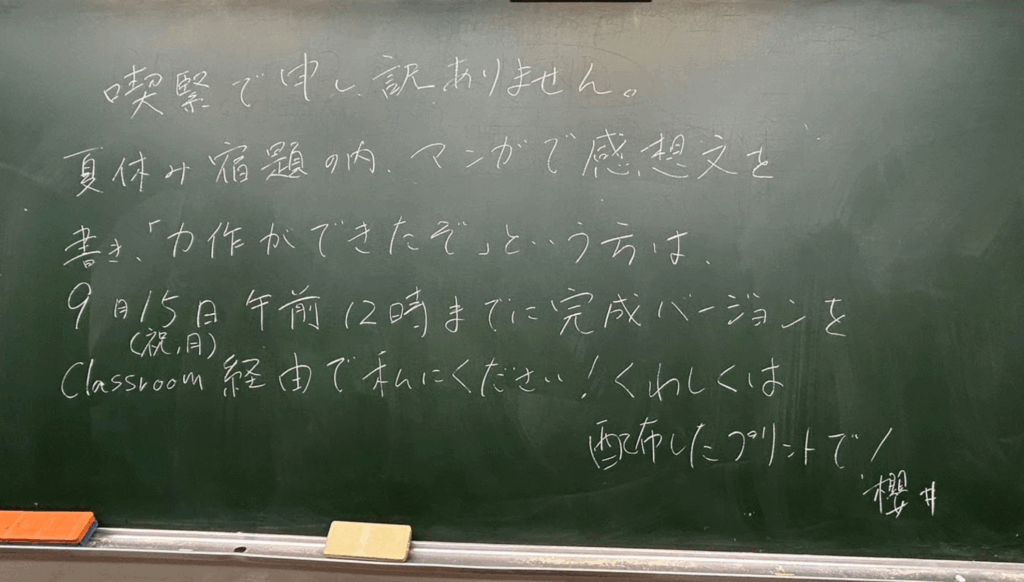 喫緊で申し訳ありません。
夏休み宿題の内、マンガで感想文を
書き、「力作ができたぞ」という方は、
9月15日午前12時までに完成バージョンを
(祝、月)
Classroom経由で私にください!くわしくは
配布したプリントで!
櫻井